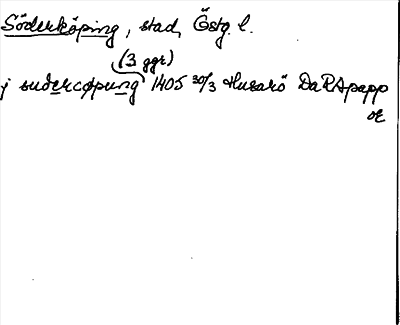 Söderköping, stad, Östg. l.
(3 ggr)
j sudercøpung 1405 30/3 Husarö DaRApapp
or